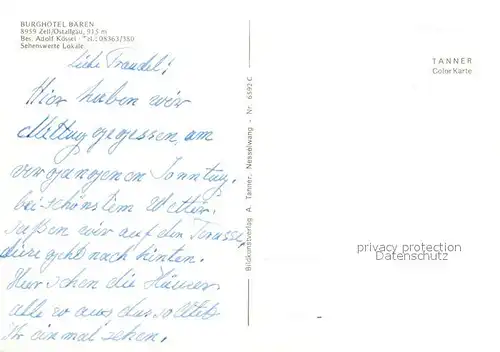 BURGHOTEL BÄREN
8959 Zell/Ostallgäu, 913 m
Bes. Adolf Kössel · Tel.: 08363/380
Sehenswerte Lokale
Liebe Traudel!
Hier haben wir
Mittag gegessen, am
vergangenen Sonntag,
bei schönstem Wetter.
saßen wir auf der Terasse,
diese geht nach hinten.
Hier sehen die Häuser
alle so aus, das solltet
Ihr einmal sehen.
Bildkunstverlag A. Tanner, Nesselwang - Nr. 6592 C
TANNER
Color Karte
privacy protection
Datenschutz